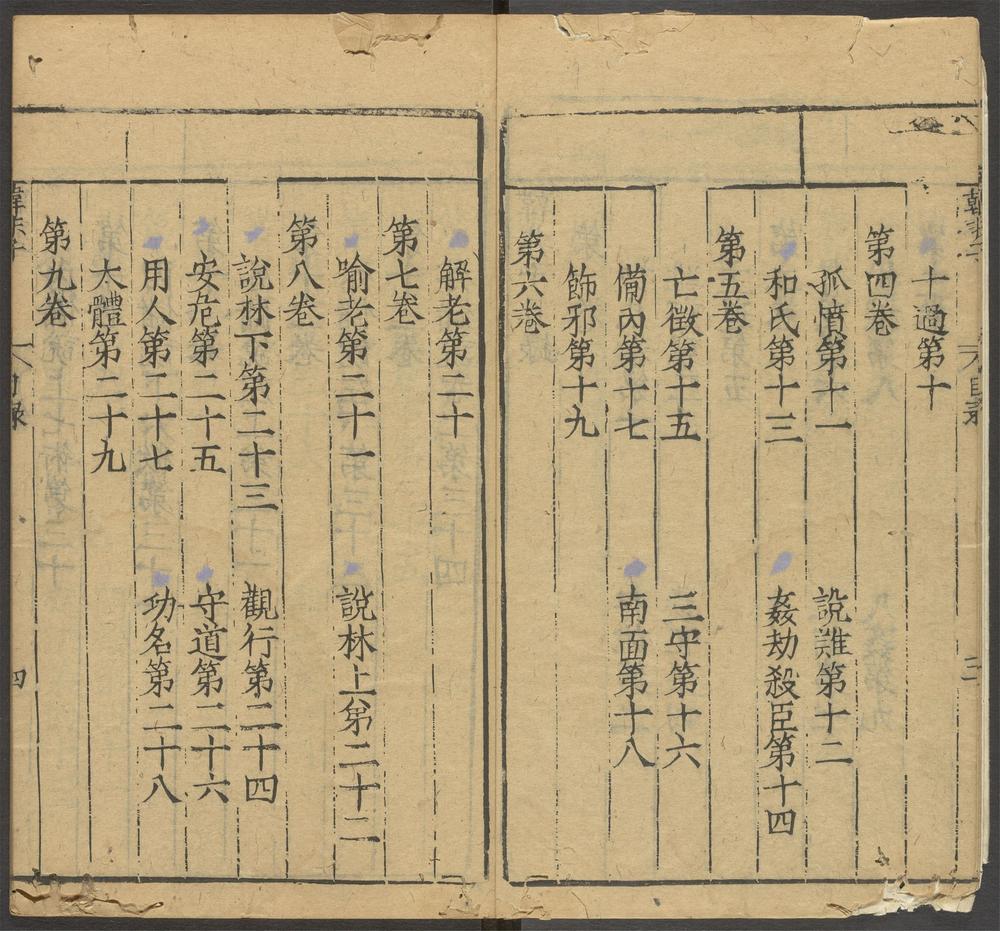 韓非子 目录 三
十過第十
第四卷
孤憤第十一 說難第十二
和氏第十三 姦劫殺臣第十四
第五卷
亡徵第十五 三守第十六
備內第十七 南面第十八
飾邪第十九
第六卷
解老第二十
第七卷
喻老第二十一 說林上第二十二
第八卷
說林下第二十三 觀行第二十四
安危第二十五 守道第二十六
用人第二十七 功名第二十八
大體第二十九
第九卷
韓非子 目録 四